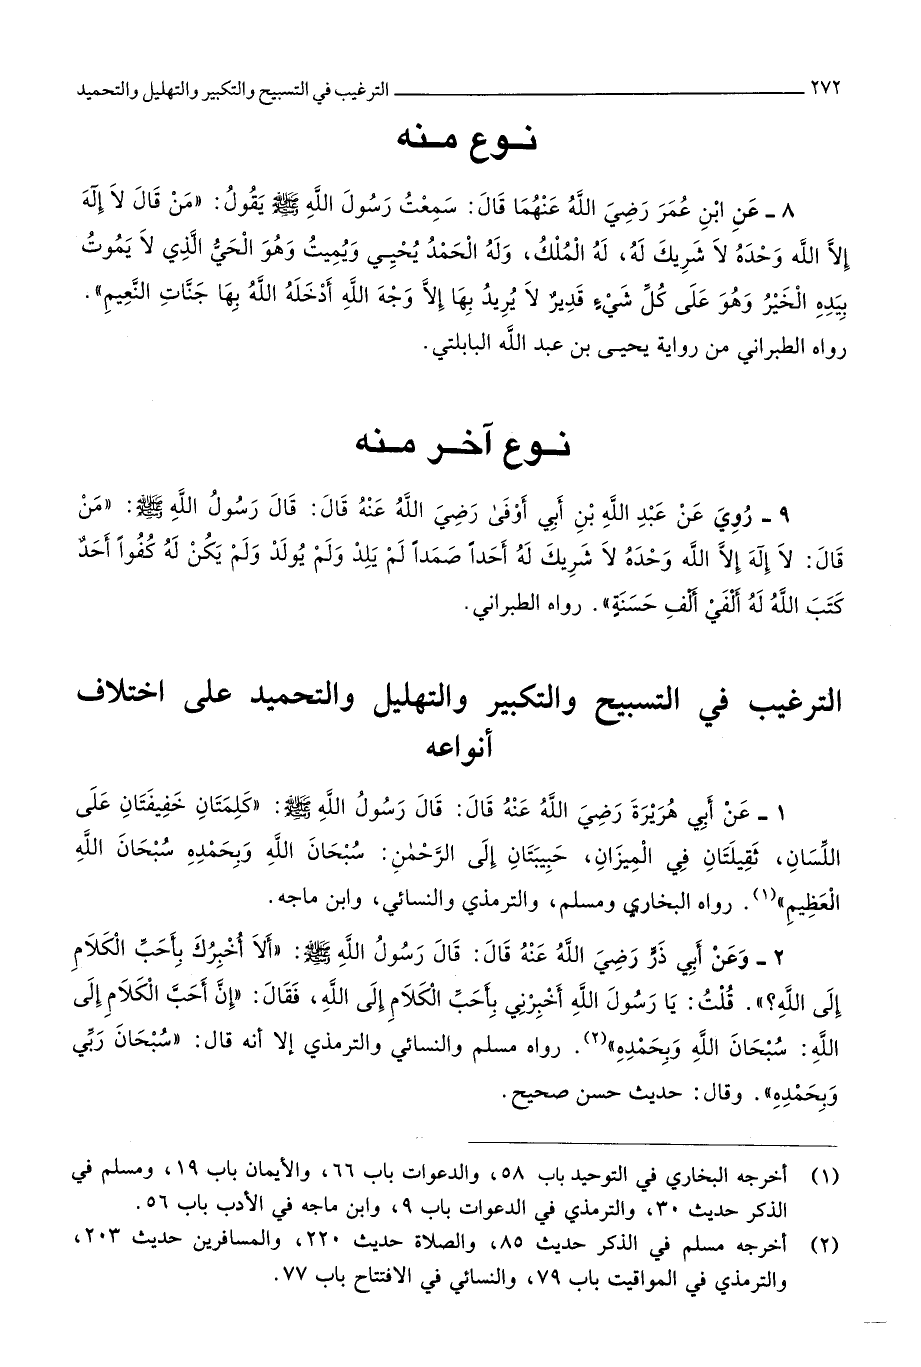 ٢٧٢ ــــــــــــــــــــ الترغيب في التسبيح والتكبير والتهليل والتحميد
نــوع مــنه
٨ ـ عَنِ ابْنِ عُمَرَ رَضِيَ اللَّهُ عَنْهُمَا قَالَ: سَمِعْتُ رَسُولَ اللَّهِ ﷺ يَقُولُ: «مَنْ قَالَ لاَ إِلَهَ
إِلاَّ اللَّه وَحْدَهُ لاَ شَرِيكَ لَهُ، لَهُ الْمُلْكُ، وَلَهُ الْحَمْدُ يُحْيِـي وَيُمِيتُ وَهُوَ الْحَيُّ الَّذِي لاَ يَمُوتُ
بِيَدِهِ الْخَيْرُ وَهُوَ عَلَى كُلِّ شَيْءٍ قَدِيرٌ لاَ يُرِيدُ بِهَا إِلاَّ وَجْهَ اللَّهِ أَدْخَلَهُ اللَّهُ بِهَا جَنَّاتِ النَّعِيمِ».
رواه الطبراني من رواية يحيـى بن عبد اللَّه البابلتي.
نــوع آخــر مــنه
٩ ـ رُوِيَ عَنْ عَبْدِ اللَّهِ بْنِ أَبِي أَوْفَىٰ رَضِيَ اللَّهُ عَنْهُ قَالَ: قَالَ رَسُولُ اللَّهِ ﷺ: «مَنْ
قَالَ: لاَ إِلَهَ إِلاَّ اللَّه وَحْدَهُ لاَ شَرِيكَ لَهُ أَحَداً صَمَداً لَمْ يَلِدْ وَلَمْ يُولَدْ وَلَمْ يَكُنْ لَهُ كُفُواً أَحَدٌ
كَتَبَ اللَّهُ لَهُ أَلْفَيْ أَلْفِ حَسَنَةٍ». رواه الطبراني.
الترغيب في التسبيح والتكبير والتهليل والتحميد على اختلاف
أنواعه
١ ـ عَنْ أَبِي هُرَيْرَةَ رَضِيَ اللَّهُ عَنْهُ قَالَ: قَالَ رَسُولُ اللَّهِ ﷺ: «كَلِمَتَانِ خَفِيفَتَانِ عَلَى
اللِّسَانِ، ثَقِيلَتَانِ فِي الْمِيزَانِ، حَبِيبَتَانِ إِلَى الرَّحْمٰنِ: سُبْحَانَ اللَّهِ وَبِحَمْدِهِ سُبْحَانَ اللَّهِ
الْعَظِيمِ»(١). رواه البخاري ومسلم، والترمذي والنسائي، وابن ماجه.
٢ ـ وَعَنْ أَبِي ذَرٍّ رَضِيَ اللَّهُ عَنْهُ قَالَ: قَالَ رَسُولُ اللَّهِ ﷺ: «أَلاَ أُخْبِرُكَ بِأَحَبِّ الْكَلاَمِ
إِلَى اللَّهِ؟». قُلْتُ: يَا رَسُولَ اللَّهِ أَخْبِرْنِي بِأَحَبِّ الْكَلاَمِ إِلَى اللَّهِ، فَقَالَ: «إِنَّ أَحَبَّ الْكَلاَمِ إِلَى
اللَّهِ: سُبْحَانَ اللَّهِ وَبِحَمْدِهِ»(٢). رواه مسلم والنسائي والترمذي إلا أنه قال: «سُبْحَانَ رَبِّي
وَبِحَمْدِهِ». وقال: حديث حسن صحيح.
(١) أخرجه البخاري في التوحيد باب ٥٨، والدعوات باب ٦٦، والأيمان باب ١٩، ومسلم في
الذكر حديث ٣٠، والترمذي في الدعوات باب ٩، وابن ماجه في الأدب باب ٥٦.
(٢) أخرجه مسلم في الذكر حديث ٨٥، والصلاة حديث ٢٢٠، والمسافرين حديث ٢٠٣،
والترمذي في المواقيت باب ٧٩، والنسائي في الافتتاح باب ٧٧.